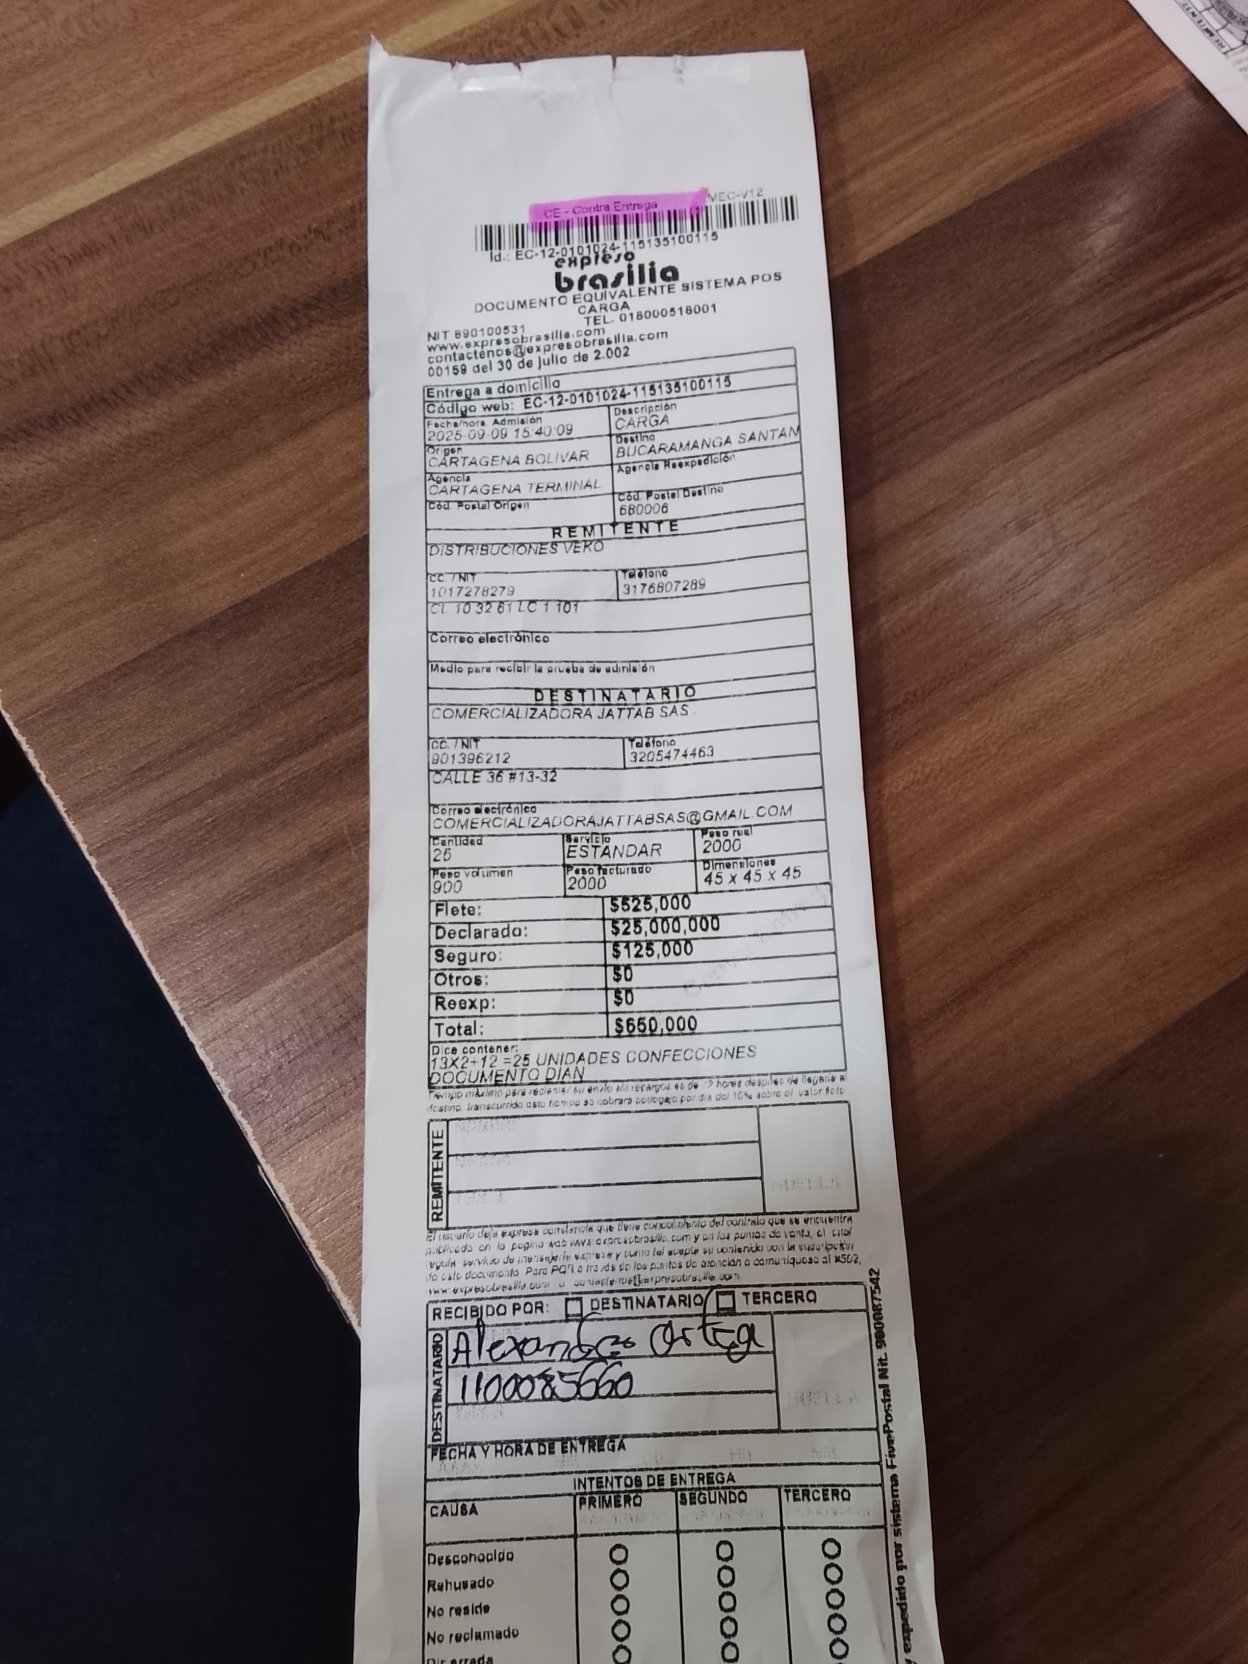 CE - Contra Entrega
MEC-V12
Id.: EC-12-0101024-115135100115
expreso
brasilia
DOCUMENTO EQUIVALENTE SISTEMA POS
CARGA
NIT 890100531 TEL. 018000518001
www.expresobrasilia.com
contactenos@expresobrasilia.com
00159 del 30 de julio de 2.002
Entrega a domicilio
Código web: EC-12-0101024-115135100115
Fecha/hora Admisión Descripción
2025-09-09 15:40:09 CARGA
Origen Destino
CARTAGENA BOLIVAR BUCARAMANGA SANTAN
Agencia Agencia Reexpedición
CARTAGENA TERMINAL
Cód. Postal Origen Cód. Postal Destino
680006
REMITENTE
DISTRIBUCIONES VEKO
CC. / NIT Teléfono
1017278279 3176807289
CL 10 32 61 LC 1 101
Correo electrónico
Medio para recibir la prueba de admisión
DESTINATARIO
COMERCIALIZADORA JATTAB SAS .
CC. / NIT Teléfono
901396212 3205474463
CALLE 36 #13-32
Correo electrónico
COMERCIALIZADORAJATTABSAS@GMAIL.COM
Cantidad Servicio Peso real
25 ESTANDAR 2000
Peso volumen Peso facturado Dimensiones
900 2000 45 x 45 x 45
Flete: $525,000
Declarado: $25,000,000
Seguro: $125,000
Otros: $0
Reexp: $0
Total: $650,000
Dice contener:
13X2+12 =25 UNIDADES CONFECCIONES
DOCUMENTO DIAN
Tiempo máximo para reclamar su envío sin recargos es de 72 horas después de llegada al
destino, transcurrido este tiempo se cobrara bodegaje por día del 10% sobre el valor flete
REMITENTE
El usuario deja expresa constancia que tiene conocimiento del contrato que se encuentra
publicado en la pagina web www.expresobrasilia.com y en los puntos de venta, el cual
regula servicio de mensajería expresa y como tal acepta su contenido con la suscripción
de este documento. Para PQR a través de los puntos de atención o comuníquese al #502,
www.expresobrasilia.com o contactenos@expresobrasilia.com
RECIBIDO POR: DESTINATARIO TERCERO
DESTINATARIO
Alexandra Ortega
1100085660
FECHA Y HORA DE ENTREGA
INTENTOS DE ENTREGA
CAUSA PRIMERO SEGUNDO TERCERO
Desconocido
Rehusado
No reside
No reclamado
Dir errada
expedido por sistema FivePostal Nit. 900087542